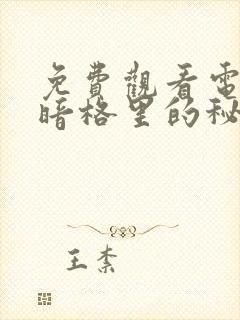 免費觀看電
暗格里的秘
王柰